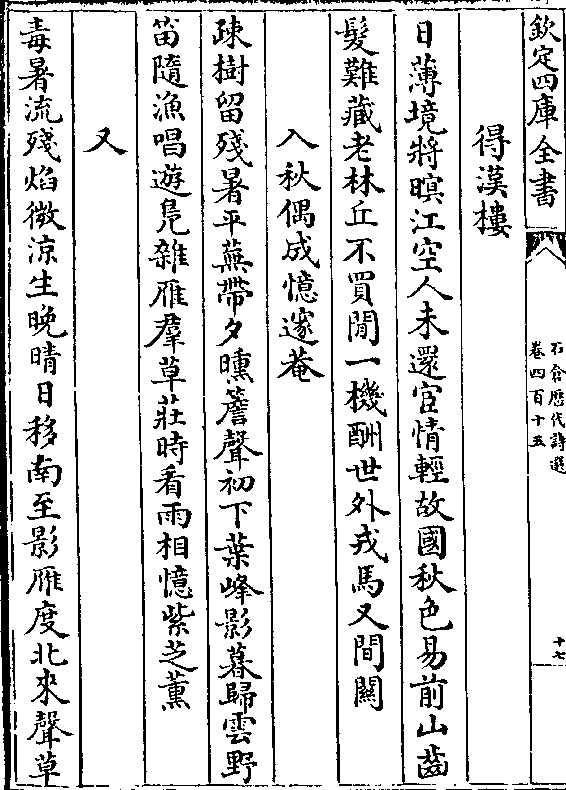 欽定四庫全書
石倉歷代詩選
卷四百十五
十七
得漢樓
日薄境將暝江空人未還宦情輕故國秋色易前山齒
髮難藏老林丘不買閒一機酬世外戎馬又間關
入秋偶成憶邃菴
疎樹留殘暑平蕪帶夕曛簷聲初下葉峰影暮歸雲野
笛隨漁唱遊鳬雜雁羣草莊時看雨相憶紫芝薰
又
毒暑流殘焰微涼生晚晴日移南至影雁度北來聲草